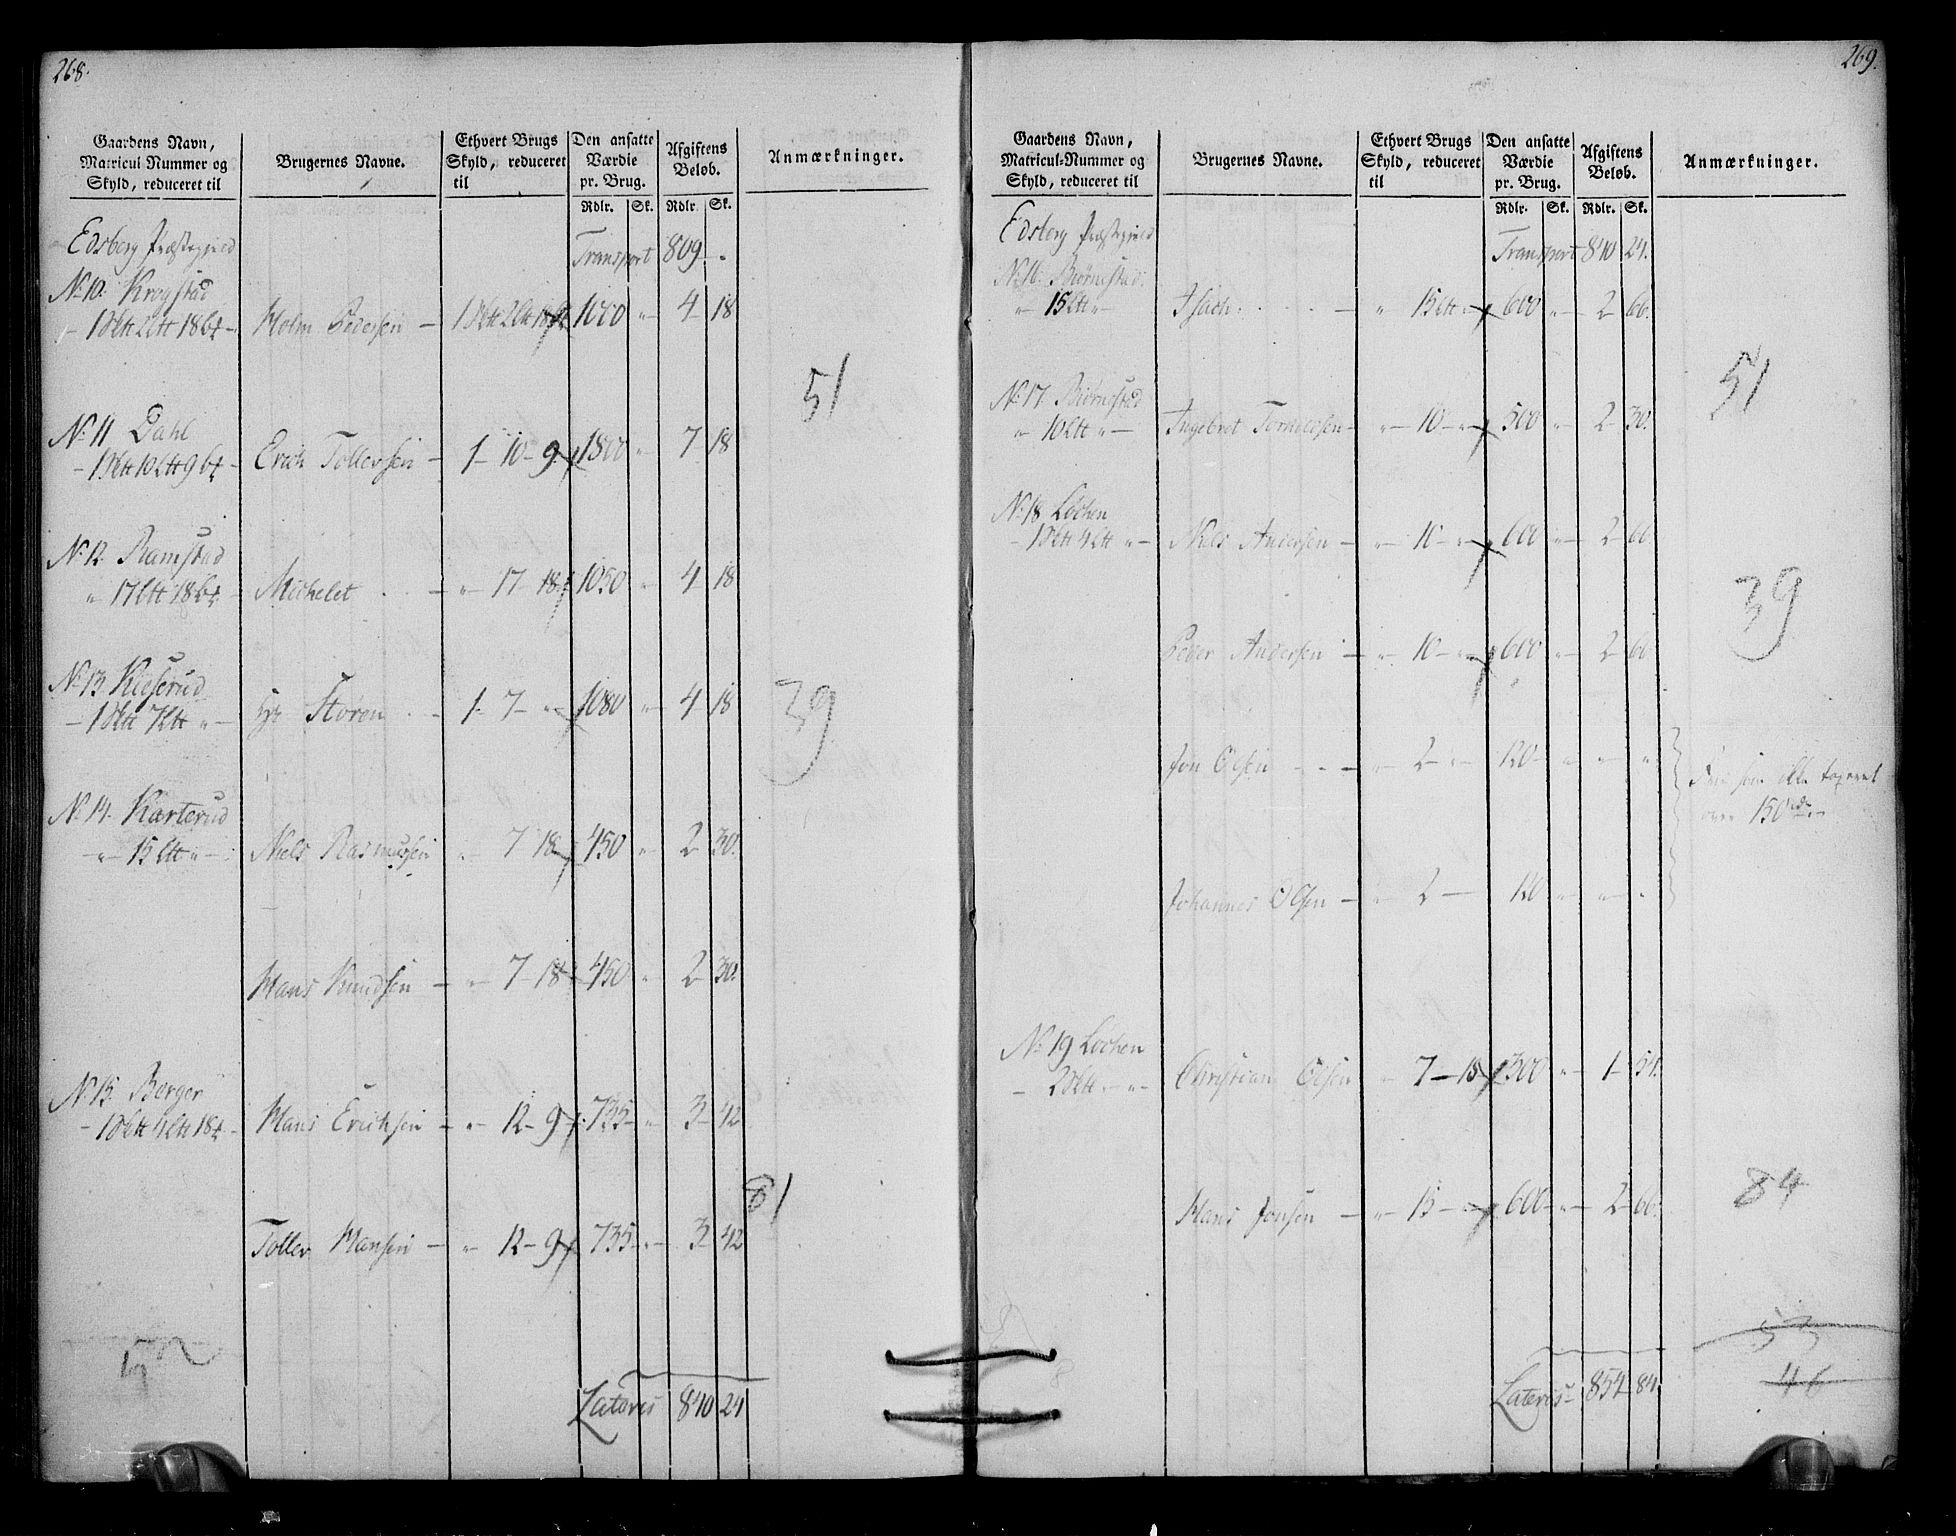 268.
Gaardens Navn, Matricul Nummer og Skyld, reduceret til
Brugernes Navne.
Ethvert Brugs Skyld, reduceret til
Den ansatte Værdie pr. Brug.
Afgiftens Beløb.
Anmærkninger.
Rdlr. Sk. Rdlr. Sk.
Edsberg Præstegield Transport 809 - "
No 10. Krogstad
1 2 18 Holm Pedersen - 1 2 18 1000 " 4 18
51
No 11 Dahl
1 10 9 Erich Tollevsen - 1- 10- 9 1800 " 7 18
No 12 Ramstad
" 17 18 Michelet - " 17- 18 1050 " 4 18
No 13 Kieserud
1 7 " Hr Støren - 1- 7- " 1080 " 4 18
39
No 14. Karterud
" 15 " Niels Rasmussen " 7 18 450 " 2 30.
Hans Knudsen - " 7- 18 450 " 2 30.
No 15. Berger
1 4 18 Hans Erichsen - " 12- 9 735 " 3 42
81
Toller Hansen - " 12- 9 735 " 3 42
Lateris 840 24
269.
Gaardens Navn, Matricul-Nummer og Skyld, reduceret til
Brugernes Navne.
Ethvert Brugs Skyld, reduceret til
Den ansatte Værdie pr. Brug.
Afgiftens Beløb.
Anmærkninger.
Rdlr. Sk. Rdlr. Sk.
Edsberg Præstegield Transport 840 24.
No 16. Biørnestad
" 15 " Isach - " 15 " 600 " 2 66.
51
No 17 Biørnestad
" 10 " Ingebret - " 10- " 500 " 2 30.
No 18 Løchen
1 4 " Niels Andersen - " 10- " 600 " 2 66
39
Peder Andersen - " 10- " 600 " 2 66
Jon Olsen - " 2- " 120 " " "
ikke taxeret
over 150 rd
Johannes Olsen - " 2- 120 " " "
No 19 Løchen
2 " " Christian Olsen " 7- 18 300 " 1- 54.
Hans Jonsen - " 15- " 600 " 2- 66.
84
53
46
Lateris 854 84